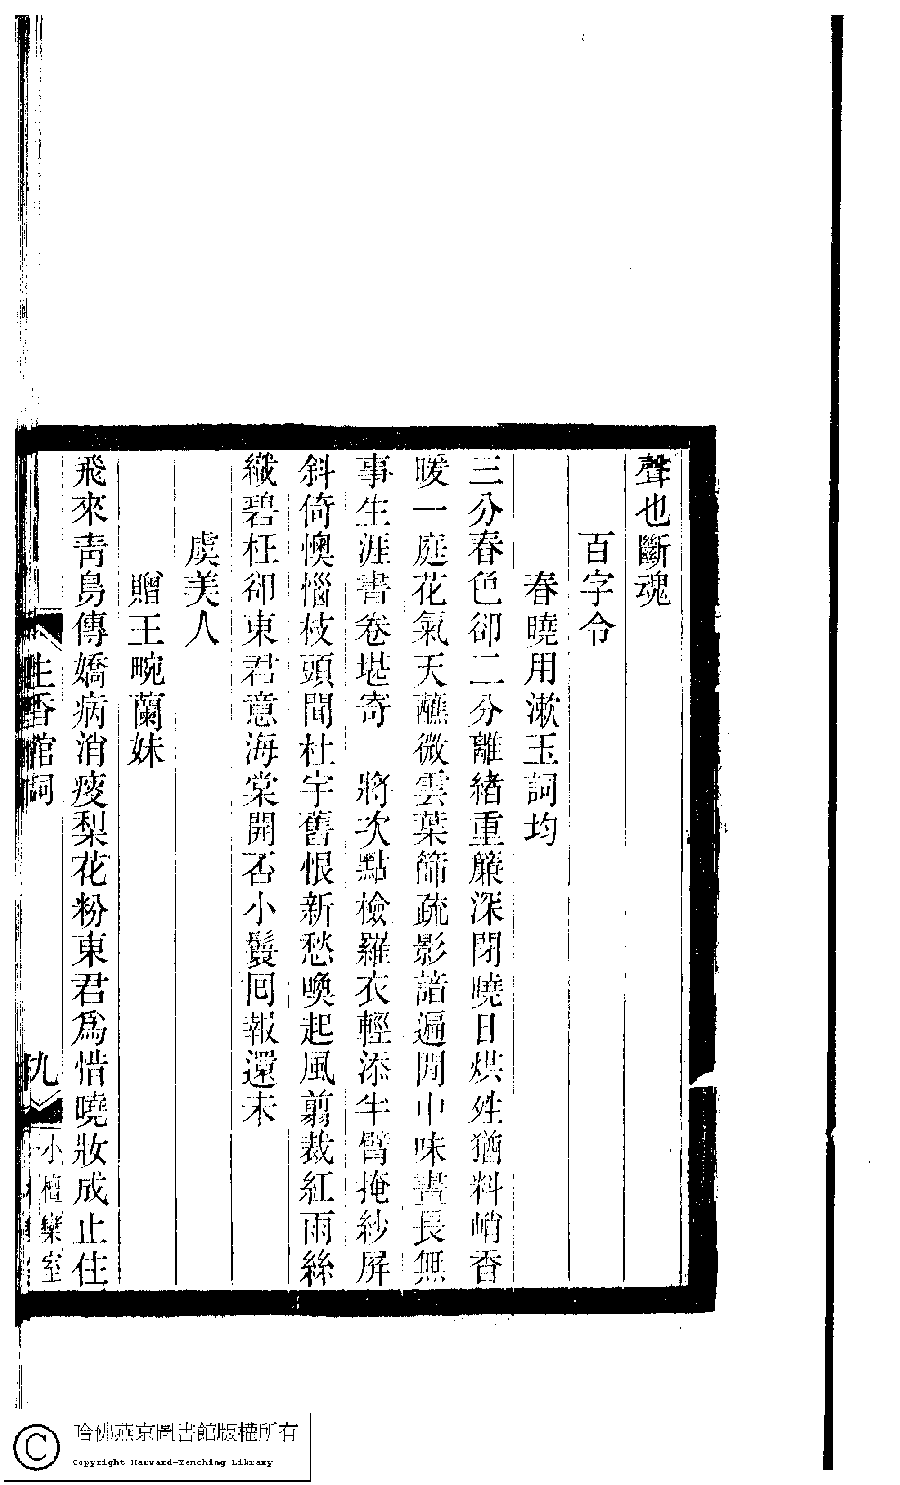 聲也斷魂
百字令
春曉用漱玉詞均
三分春色卻二分離緒重簾深閉曉日烘殘猶料峭香
暖一庭花氣天蘸微雲葉篩疏影諳遍閒中味晝長無
事生涯書卷堪寄　將次點檢羅衣輕添半臂掩紗屏
斜倚懊惱枝頭聞杜宇舊恨新愁喚起風翦裁紅雨絲
纖碧枉卻東君意海棠開否小鬟囘報還未
虞美人
贈王畹蘭妹
飛來靑鳥傳嬌病消瘦梨花粉東君爲惜曉妝成止住
生香館詞
九
小檀欒室
哈佛燕京圖書館版權所有
Copyright Harvard-Yenching Library